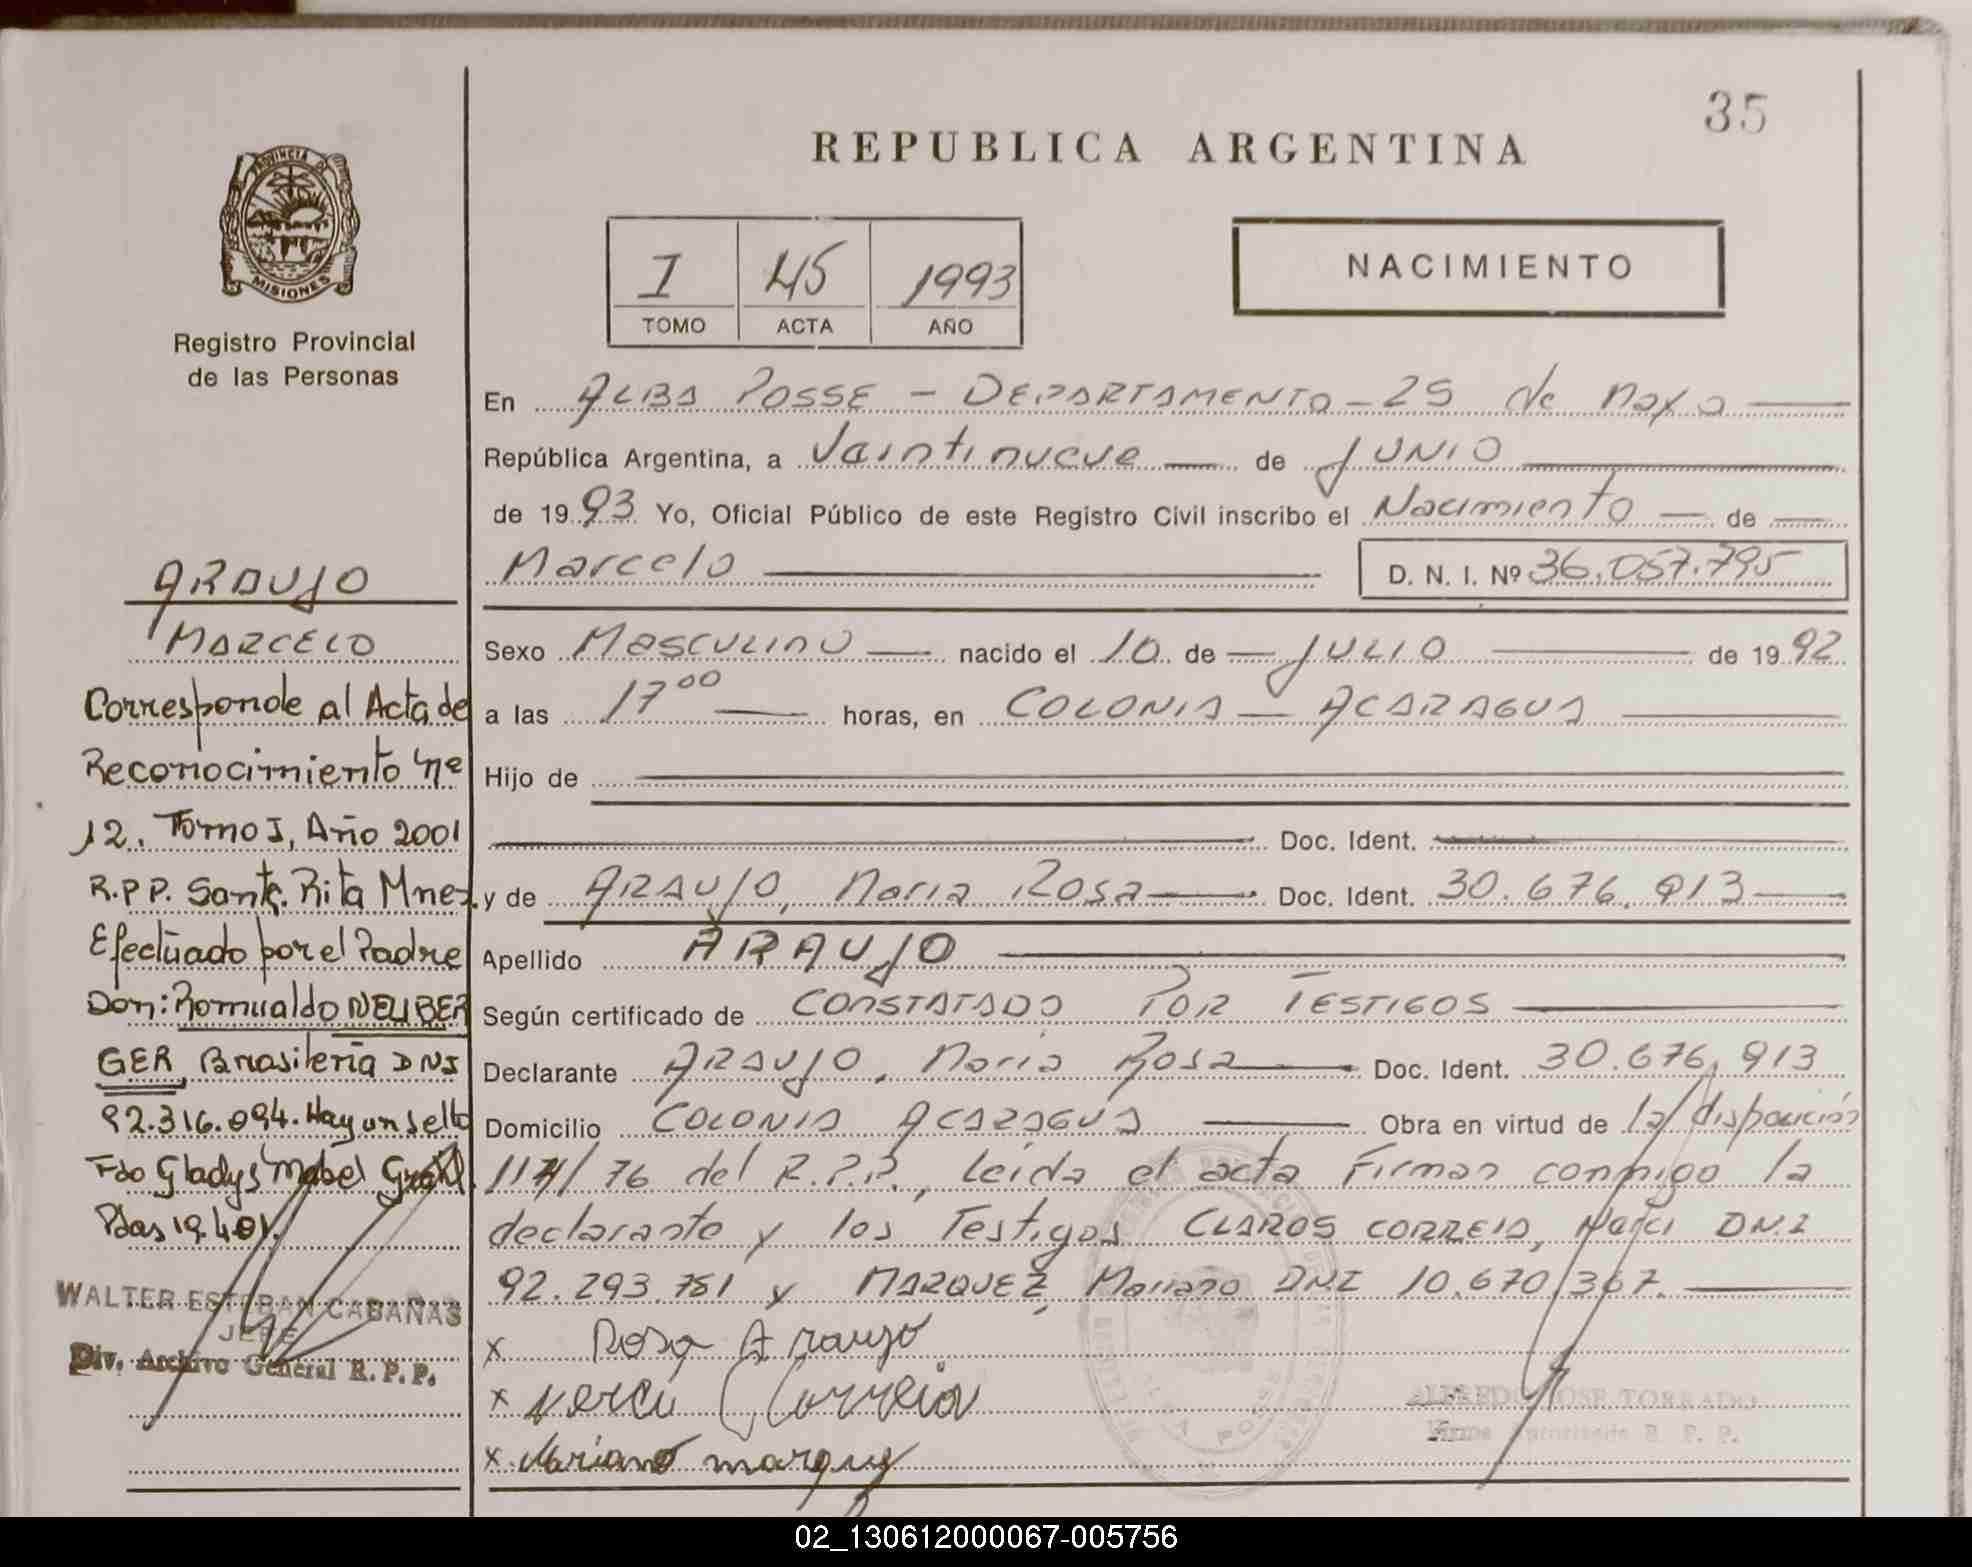 35
REPUBLICA ARGENTINA
PROVINCIA DE
MISIONES
Registro Provincial
de las Personas
I 45 1993
TOMO ACTA AÑO
NACIMIENTO
ARAUJO
MARCELO
Corresponde al Acta de
Reconocimiento Nº
12. Tomo I, Año 2001
R.P.P. Santa Rita Mnes.
Efectuado por el Padre
Don: Romualdo NEUBER
GER, Brasileria DNI
92.316.094. Hay un sello
Fdo Gladys Mabel
Pdas 19.4.01.
WALTER ESTEBAN CABAÑAS
JEFE
Div. Archivo General R. P. P.
En ALBA POSSE - DEPARTAMENTO - 25 de Mayo
República Argentina, a Veintinueve de JUNIO
de 1993 Yo, Oficial Público de este Registro Civil inscribo el Nacimiento de
Marcelo D. N. I. Nº 36.057.795
Sexo MASCULINO nacido el 10 de JULIO de 1992
a las 17 00 horas, en COLONIA ACARAGUA
Hijo de
Doc. Ident.
y de ARAUJO, Maria Rosa Doc. Ident. 30.676.913
Apellido ARAUJO
Según certificado de CONSTATADO POR TESTIGOS
Declarante ARAUJO, Maria Rosa Doc. Ident. 30.676.913
Domicilio COLONIA ACARAGUA Obra en virtud de la disposición
1171/76 del R.P.P., Leida el acta Firman conmigo la
declarante y los Testigos CLAROS CORREIA, DN.I
92.293.781 y MARQUEZ, Mariano DNI 10.670.367.
x Rosa Araujo
x Nerci C Correia
x Mariano marquez
ALFREDO JOSE TORRADO
Firma Autorizada R. P. P.
02_130612000067-005756